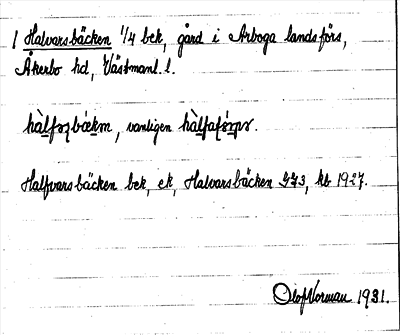 1 Halvarsbäcken 1/4 bek, gård i Arboga landsförs,
Åkerbo hd, Västmanl. l.
vanligen
Halfvarsbäcken bek, ek, Halvarsbäcken GF3, kb 1927.
Olof Norman 1931.